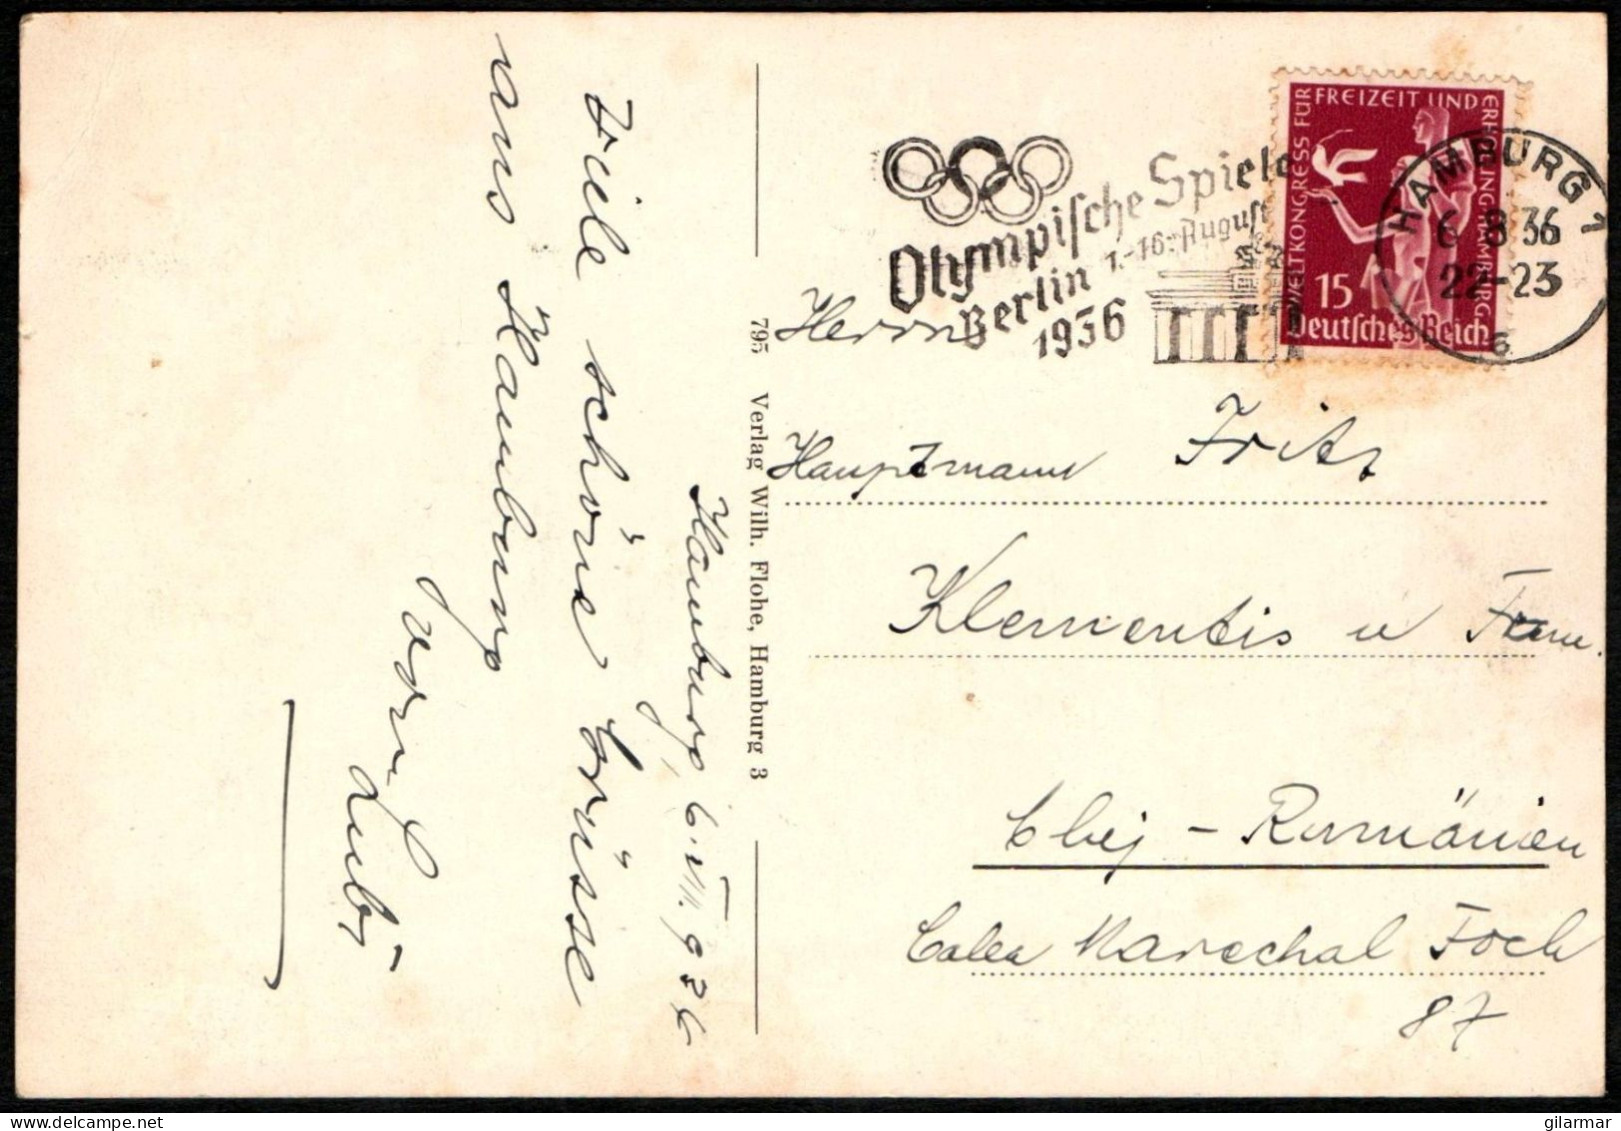 Viele schöne Grüsse
aus Hamburg
von Lubi
Hamburg, 6.VIII.936
795 Verlag Wilh. Flohe, Hamburg 3
Olympische Spiele
Berlin 1.-16. August
1936
WELTKONGRESS FÜR FREIZEIT UND ERHOLUNG HAMBURG
15
Deutsches Reich
HAMBURG 1
6 8 36
22-23
s
Herrn
Hauptmann Fritz
Klementis u Frau.
Cluj - Rumänien
Calea Marechal Foch
87
gilarmar